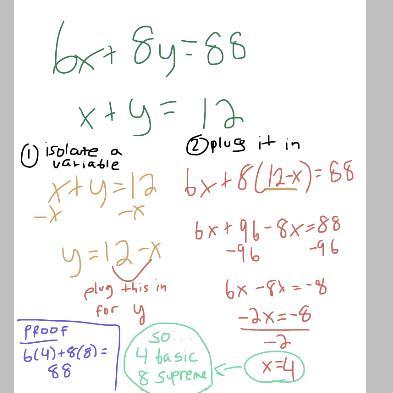 6x + 8y = 88
x + y = 12
① isolate a
variable
x + y = 12
-x -x
y = 12 - x
plug this in
for y
② plug it in
6x + 8(12-x) = 88
6x + 96 - 8x = 88
-96 -96
6x - 8x = -8
-2x = -8
-2
x = 4
so...
4 basic
8 supreme
PROOF
6(4) + 8(8) =
88